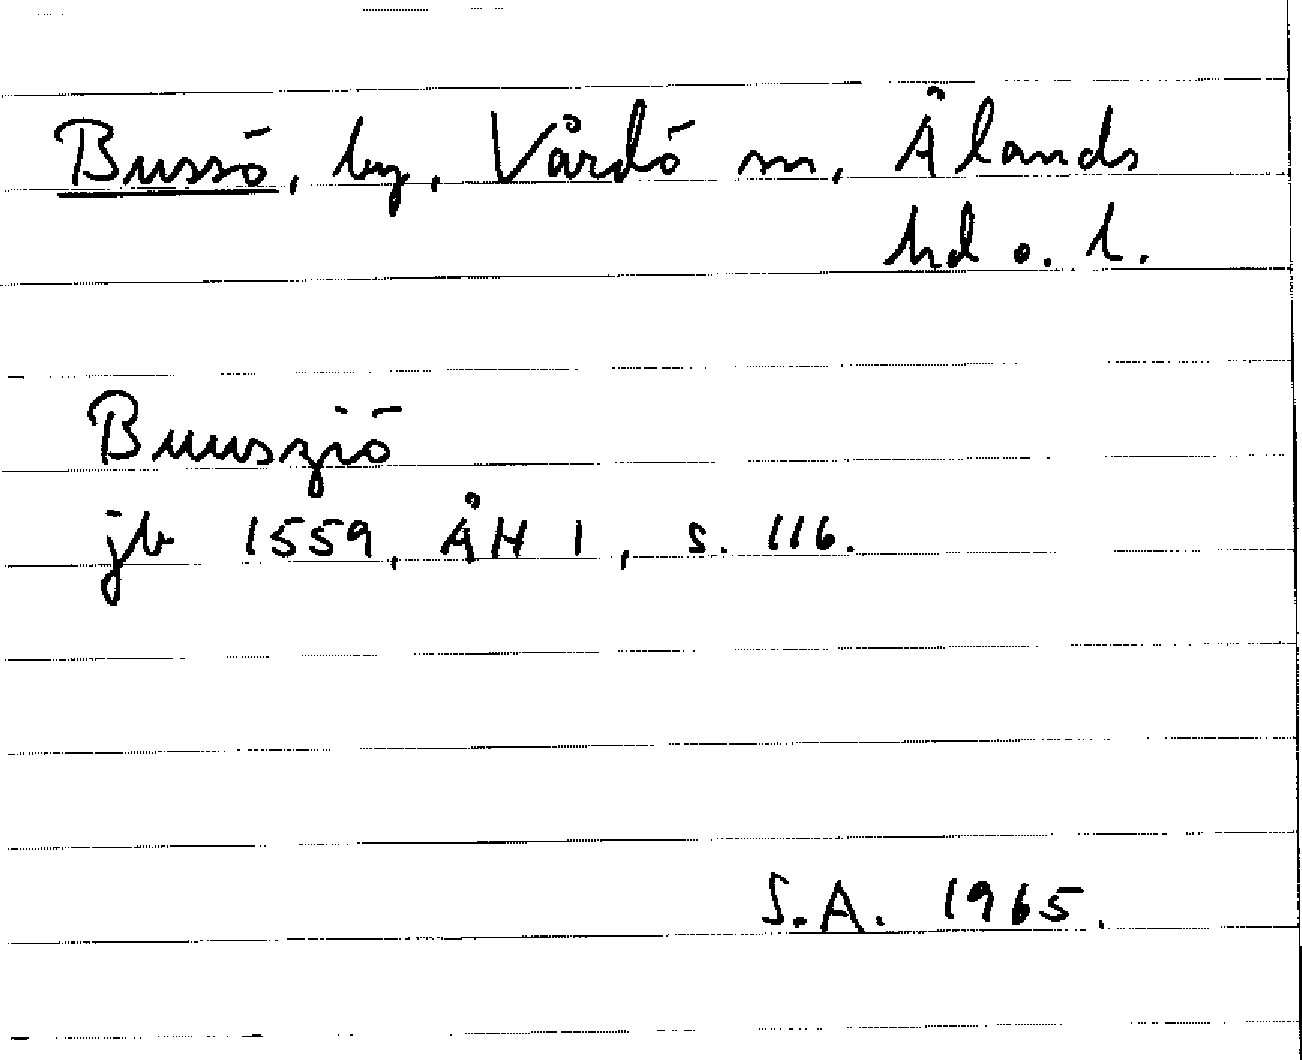 Bussö, by, Vårdö sn, Ålands
hd o. l.
Buusziö
jb 1559, ÅH 1, s. 116.
S.A. 1965.